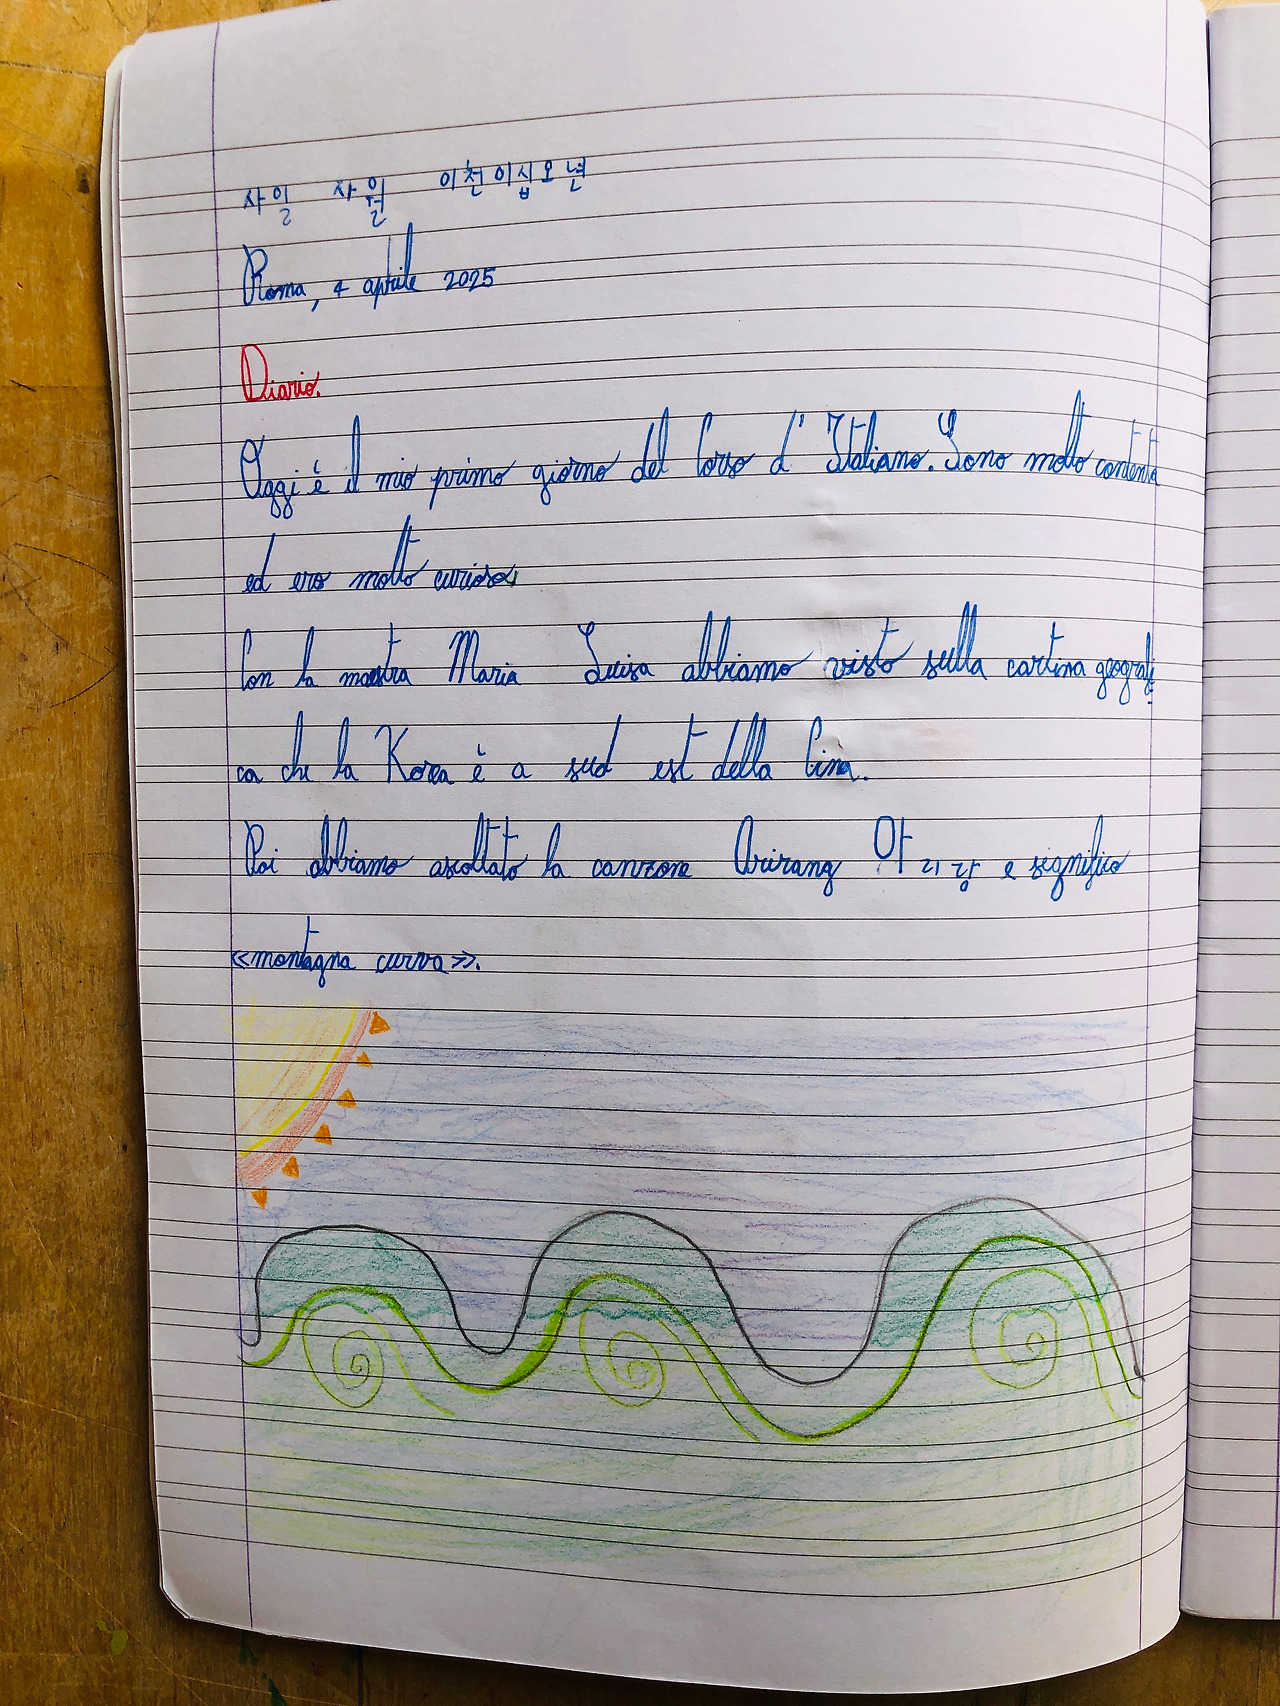 사일 사월 이천이십오년
Roma, 4 aprile 2025
Diario.
Oggi è il mio primo giorno del Corso d' Italiano. Sono molto contenta
ed ero molto curiosa
Con la maestra Maria Luisa abbiamo visto sulla cartina geografi
ca che la Korea è a sud est della Cina.
Poi abbiamo ascoltato la canzone Arirang 아리랑 e significa
«montagna curva».